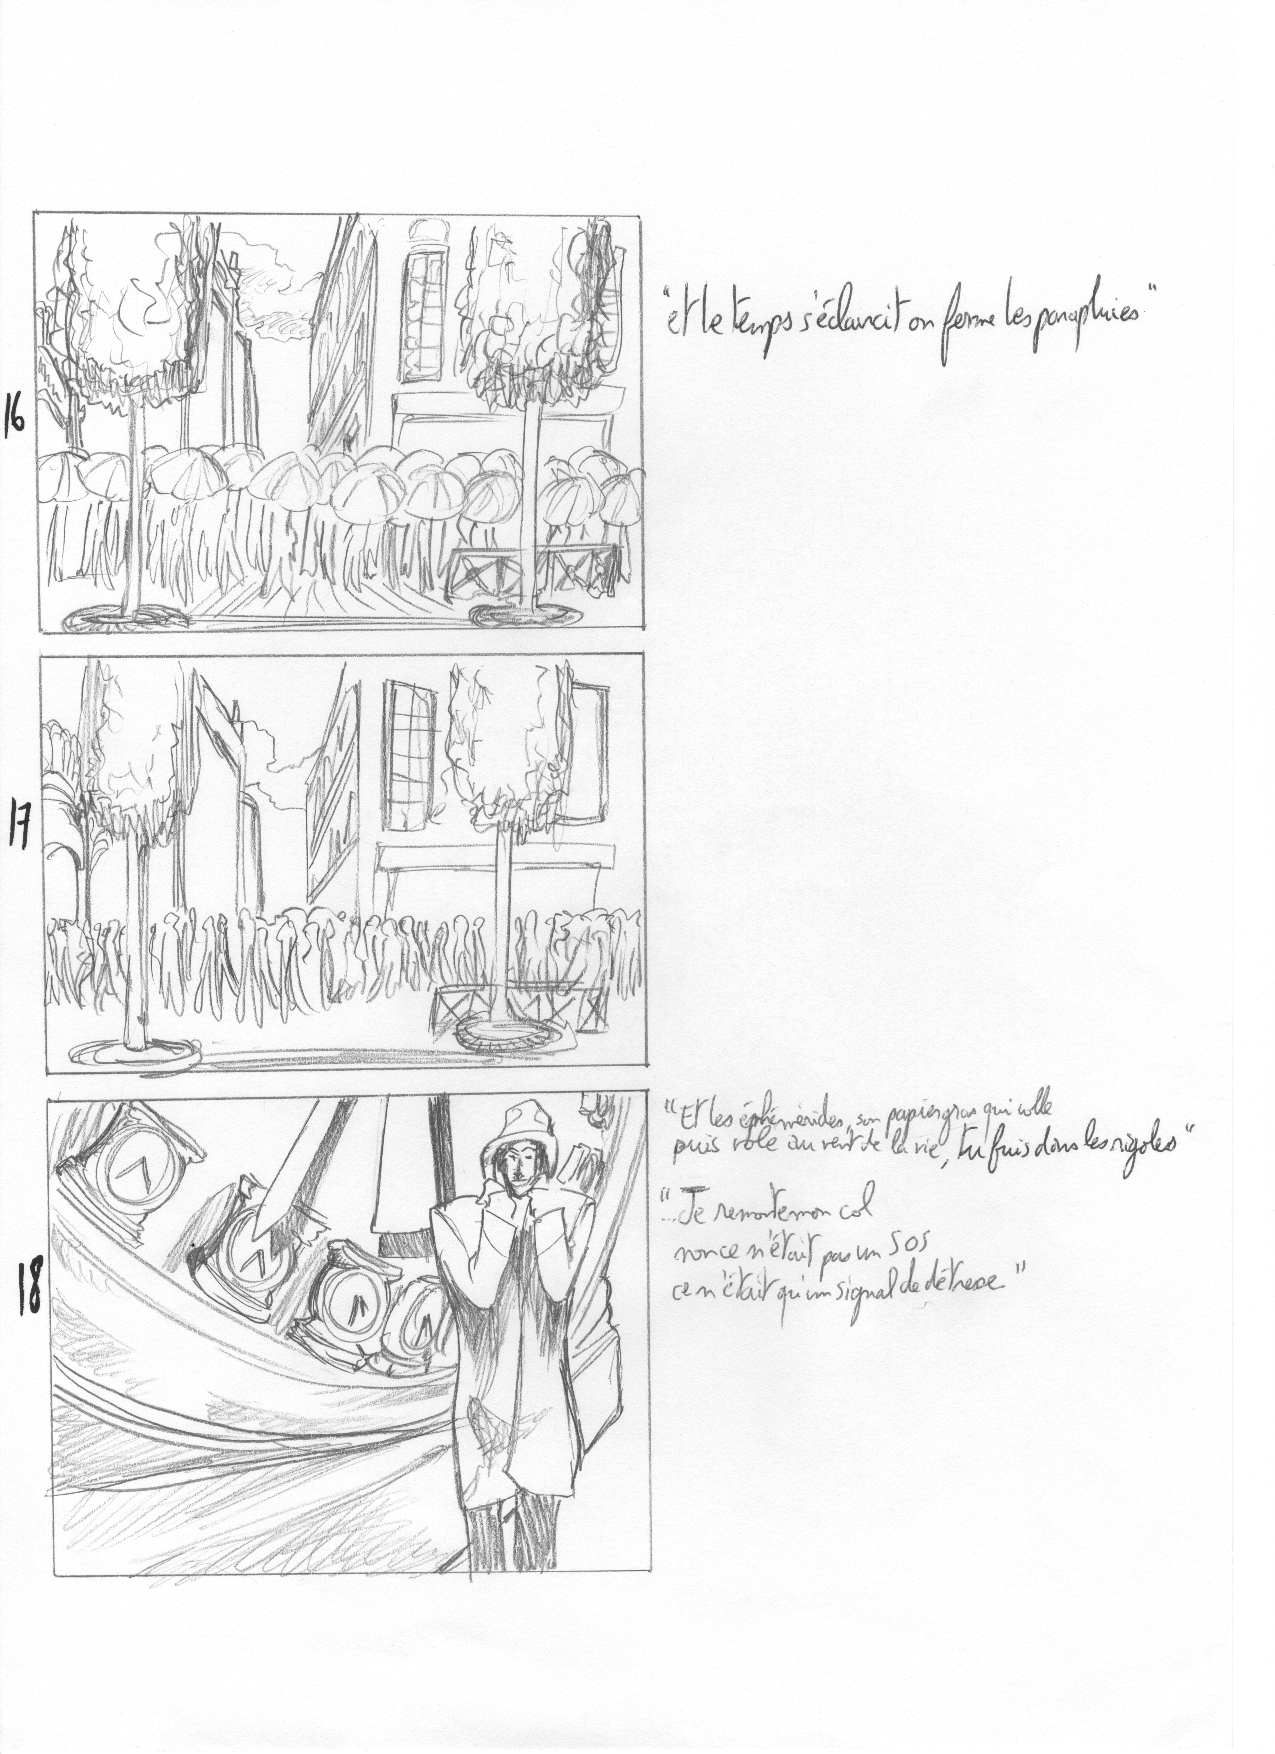 16
"et le temps s'éclaircit on ferme les parapluies"
17
18
"Et les éphémérides, son papier gras qui colle
puis vole au vent de la vie, tu fuis dans les rigoles"
"...Je remonte mon col
non ce n'était pas un SOS
ce n'était qu'un signal de détresse"